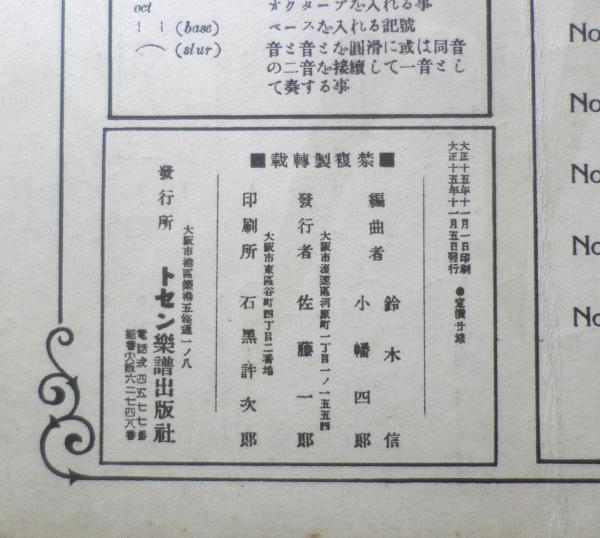 oct オクターブを入れる事
(base) ベースを入れる記號
(slur) 音と音とを圓滑に或は同音
の二音を接續して一音とし
て奏する事
■禁複製轉載■
大正十五年十一月一日印刷
大正十五年十一月五日發行
●定價廿錢
編曲者 鈴木信
小幡四郎
大阪市浪速區河原町一丁目一ノ一五五四
發行者 佐藤一郎
大阪市東區谷町四丁目二番地
印刷所 石黑許次郎
發行所
大阪市港區
五條通一ノ八
トセン樂譜出版社
電話戎四五七七番
振替大阪六二七四八番
No
No
No
No
No